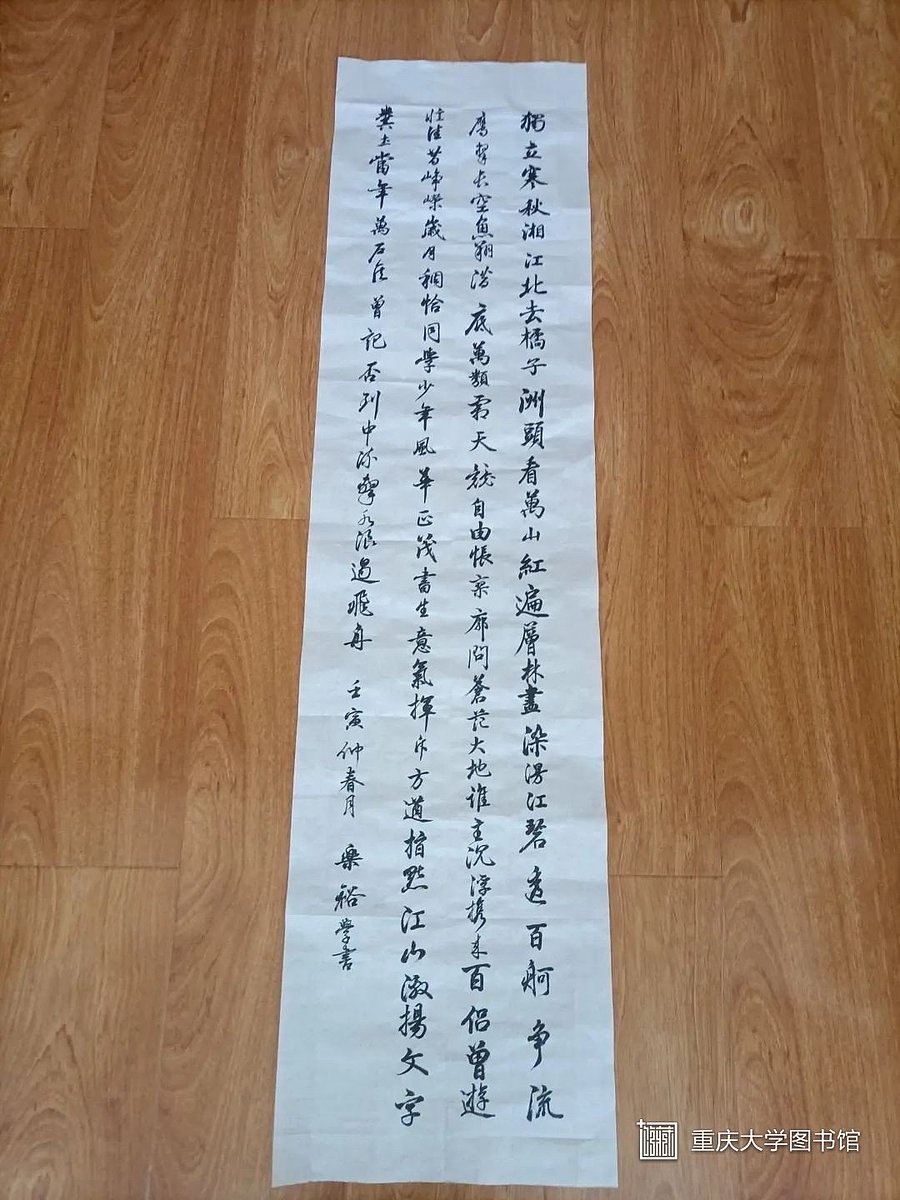 獨立寒秋湘江北去橘子洲頭看萬山紅遍層林盡染漫江碧透百舸争流
鹰擊長空魚翔淺底萬類霜天競自由悵寥廓問蒼茫大地誰主沉浮携来百侣曾遊
憶往昔崢嶸歲月稠恰同學少年風華正茂書生意氣揮斥方遒指點江山激揚文字
糞土當年萬户侯曾記否到中流擊水浪遏飛舟 壬寅仲春月 樂裕學書
重庆大学图书馆